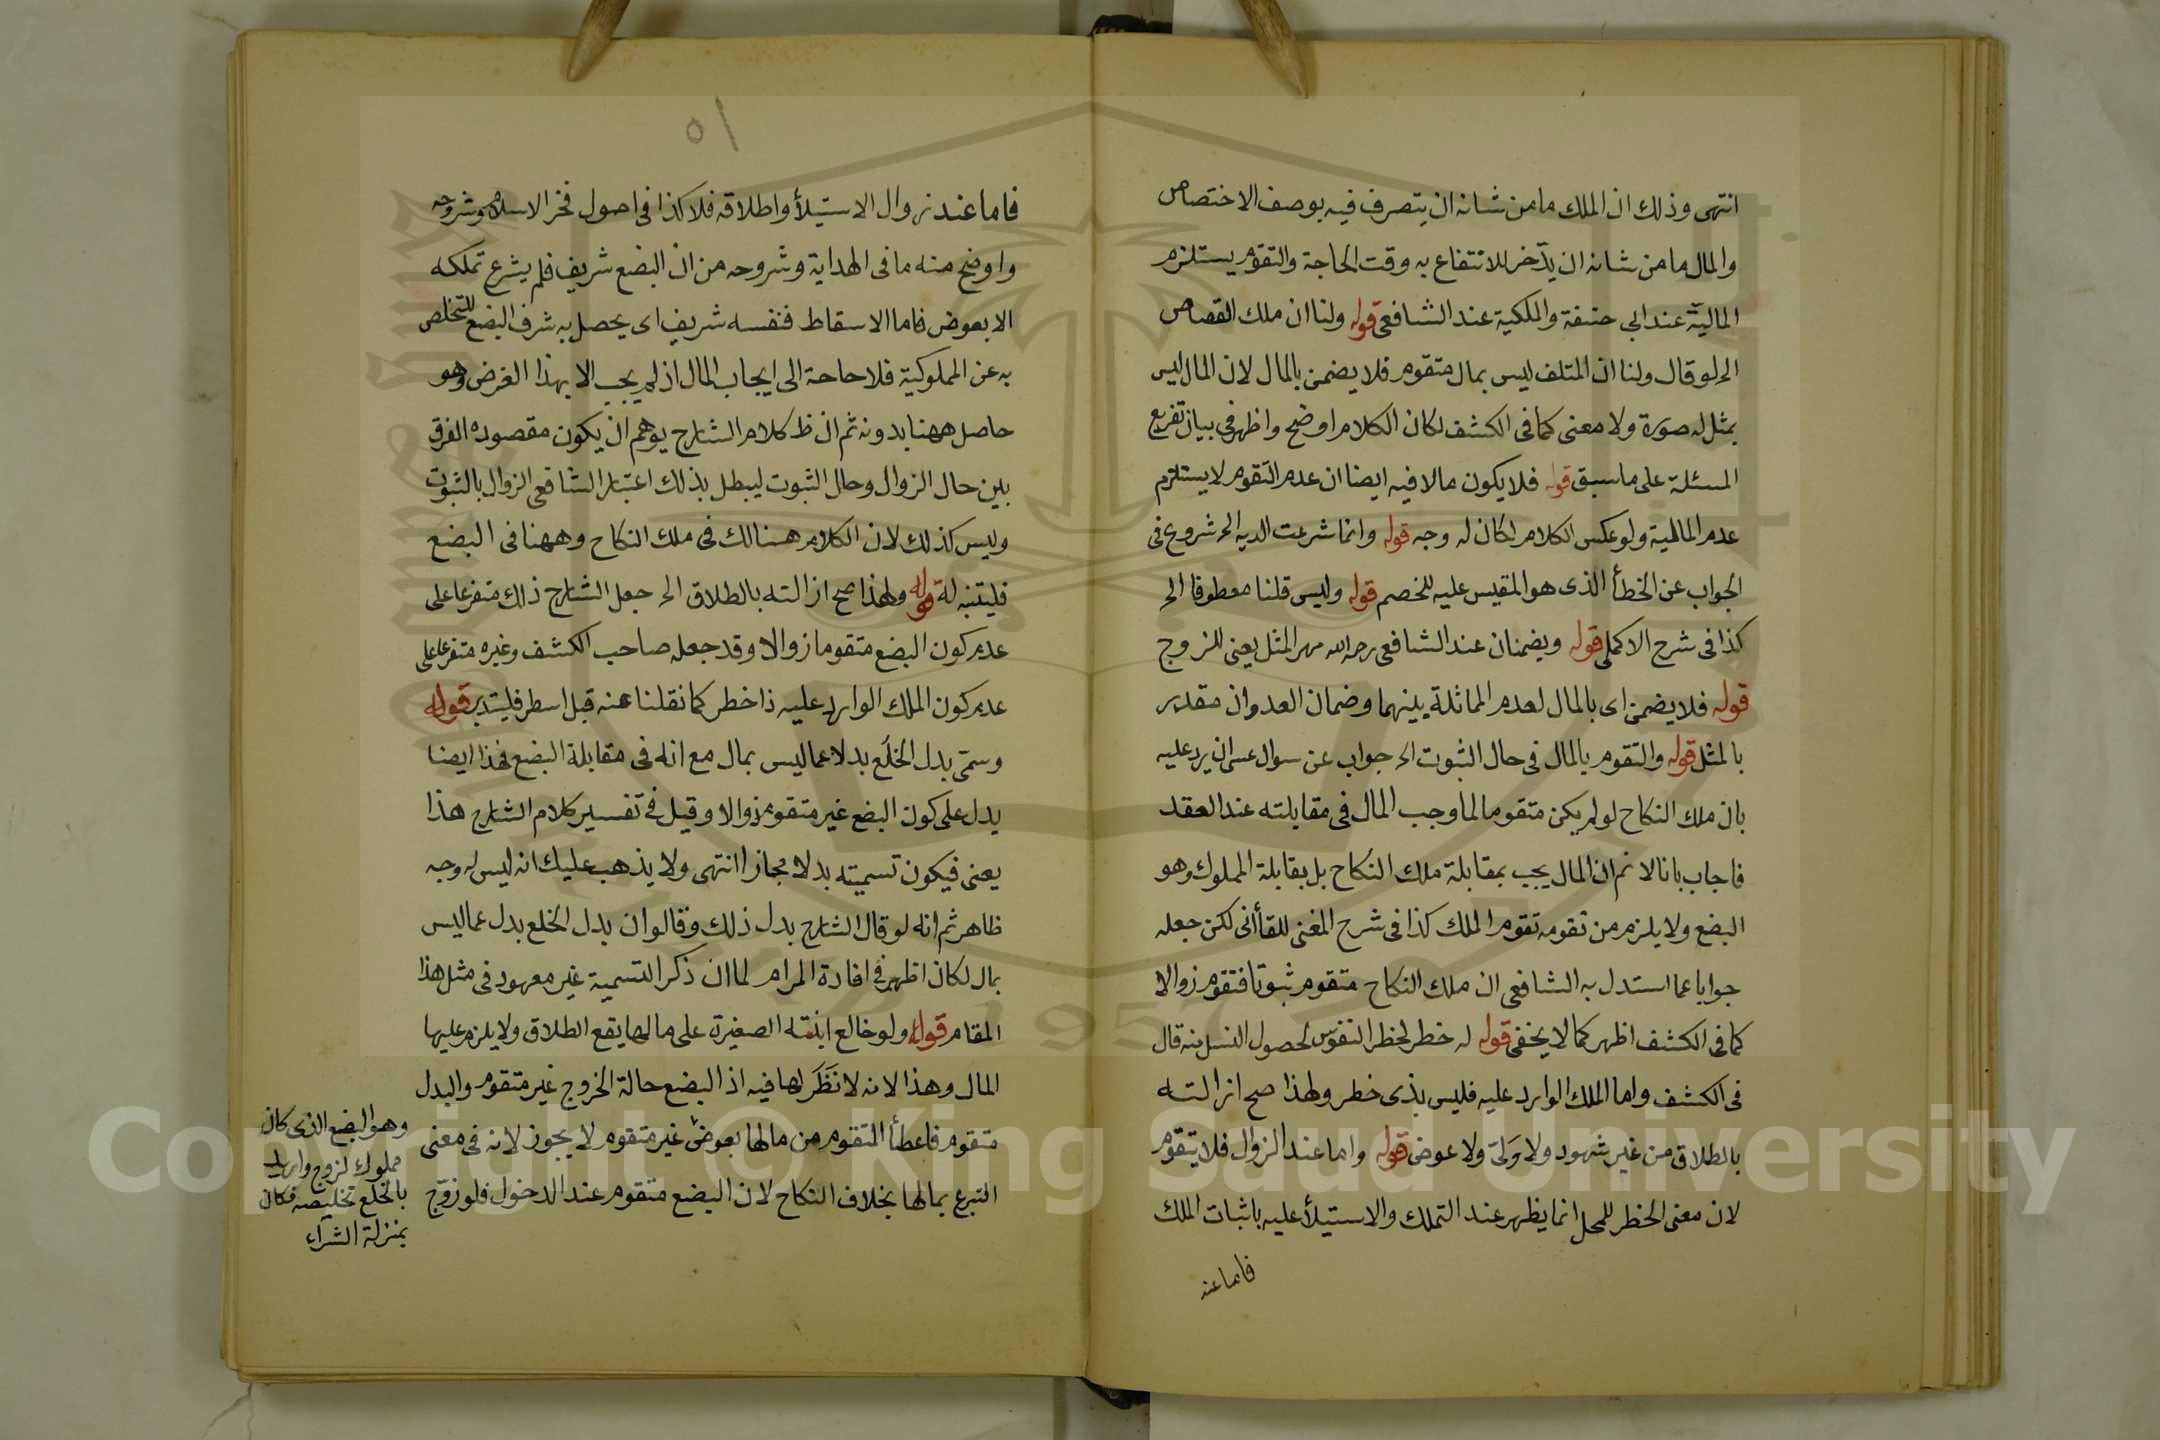 انتهى وذلك ان الملك ما من شانه ان يتصرف فيه بوصف الاختصاص
والمال ما من شانه ان يدّخر للانتفاع به وقت الحاجة والتقوم يستلزم
المالية عند ابي حنيفة والملكية عند الشافعي قوله ولنا ان ملك القصاص
الخ لو قال ولنا ان المتلف ليس بمال متقوم فلا يضمن بالمال لان المال ليس
بمثل له صورة ولا معنى كما في الكشف لكان الكلام اوضح واظهر في بيان تفريع
المسئلة على ما سبق قوله فلا يكون مالا فيه ايضا ان عدم التقوم لا يستلزم
عدم المالية ولو عكس الكلام لكان له وجه قوله وانما شرعت الديه الخ شروع في
الجواب عن الخطأ الذى هو المقيس عليه للخصم قوله وليس قلنا معطوفا الخ
كذا في شرح الاكملى قوله ويضمنان عند الشافعي رحمه الله مهر المثل يعنى للزوج
قوله فلا يضمن اى بالمال لعدم المماثلة بينهما وضمان العدوان مقدر
بالمثل قوله والتقوم بالمال في حال الثبوت الخ جواب عن سوال عسى ان يرد عليه
بان ملك النكاح لو لم يكن متقوما لما وجب المال في مقابلته عند العقد
فاجاب بانا لا نم ان المال يجب بمقابلة ملك النكاح بل بمقابلة المملوك وهو
البضع ولا يلزم من تقومه تقوم الملك كذا في شرح المغنى للقاأنى لكن جعله
جوابا عما استدل به الشافعي ان ملك النكاح متقوم ثبوتا فتقوم زوالا
كما في الكشف اظهر كما لا يخفى قوله له خطر لخطر النفوس لحصول النسل منه قال
في الكشف واما الملك الوارد عليه فليس بذى خطر ولهذا صح ازالته
بالطلاق من غير شهود ولا ولىّ ولا عوض قوله واما عند الزوال فلا يتقوم
لان معنى الخطر للمحل انما يظهر عند التملك والاستيلأ عليه باثبات الملك
فاما عند
٥١
فاما عند زوال الاستيلأ واطلاقه فلا كذا في اصول فخر الاسلام وشروحه
واوضح منه ما في الهداية وشروحه من ان البضع شريف فلم يشرع تملكه
الا بعوض فاما الاسقاط فنفسه شريف اى يحصل به شرف البضع للتخلص
به عن المملوكية فلا حاجة الى ايجاب المال اذ لم يجب الا بهذا الغرض وهو
حاصل ههنا بدونه ثم ان ظ كلام الشارح يوهم ان يكون مقصوده الفرق
بين حال الزوال وحال الثبوت ليبطل بذلك اعتبار الشافعي الزوال بالثبوت
وليس كذلك لان الكلام هنالك في ملك النكاح وههنا في البضع
فليتنبه له قوله ولهذا صح ازالته بالطلاق الخ جعل الشارح ذلك متفرعا على
عدم كون البضع متقوما زوالا وقد جعله صاحب الكشف وغيره متفرعا على
عدم كون الملك الوارد عليه ذا خطر كما نقلنا عنه قبل اسطر فليتدبر قوله
وسمّى بدل الخلع بدلا عما ليس بمال مع انه في مقابلة البضع فهذا ايضا
يدل على كون البضع غير متقوم زوالا وقيل في تفسير كلام الشارح هذا
يعنى فيكون تسميته بدلا مجازا انتهى ولا يذهب عليك انه ليس له وجه
ظاهر ثم انه لو قال الشارح بدل ذلك وقالوا ان بدل الخلع بدل عما ليس
بمال لكان اظهر في افادة المرام لما ان ذكر التسمية غير معهود في مثل هذا
المقام قوله ولو خالع ابنته الصغيرة على مالها يقع الطلاق ولا يلزم عليها
المال وهذا لانه لا نظر لها فيه اذ البضع حالة الخروج غير متقوم والبدل
متقوم فاعطأ المتقوم من مالها بعوض غير متقوم لا يجوز لانه في معنى
التبرع بمالها بخلاف النكاح لان البضع متقوم عند الدخول فلو زوّج
وهو البضع الذى كان
مملوك لزوج وارد
بالخلع تخليصه فكان
بمنزلة الشراء
Copyright © King Saud University
1957